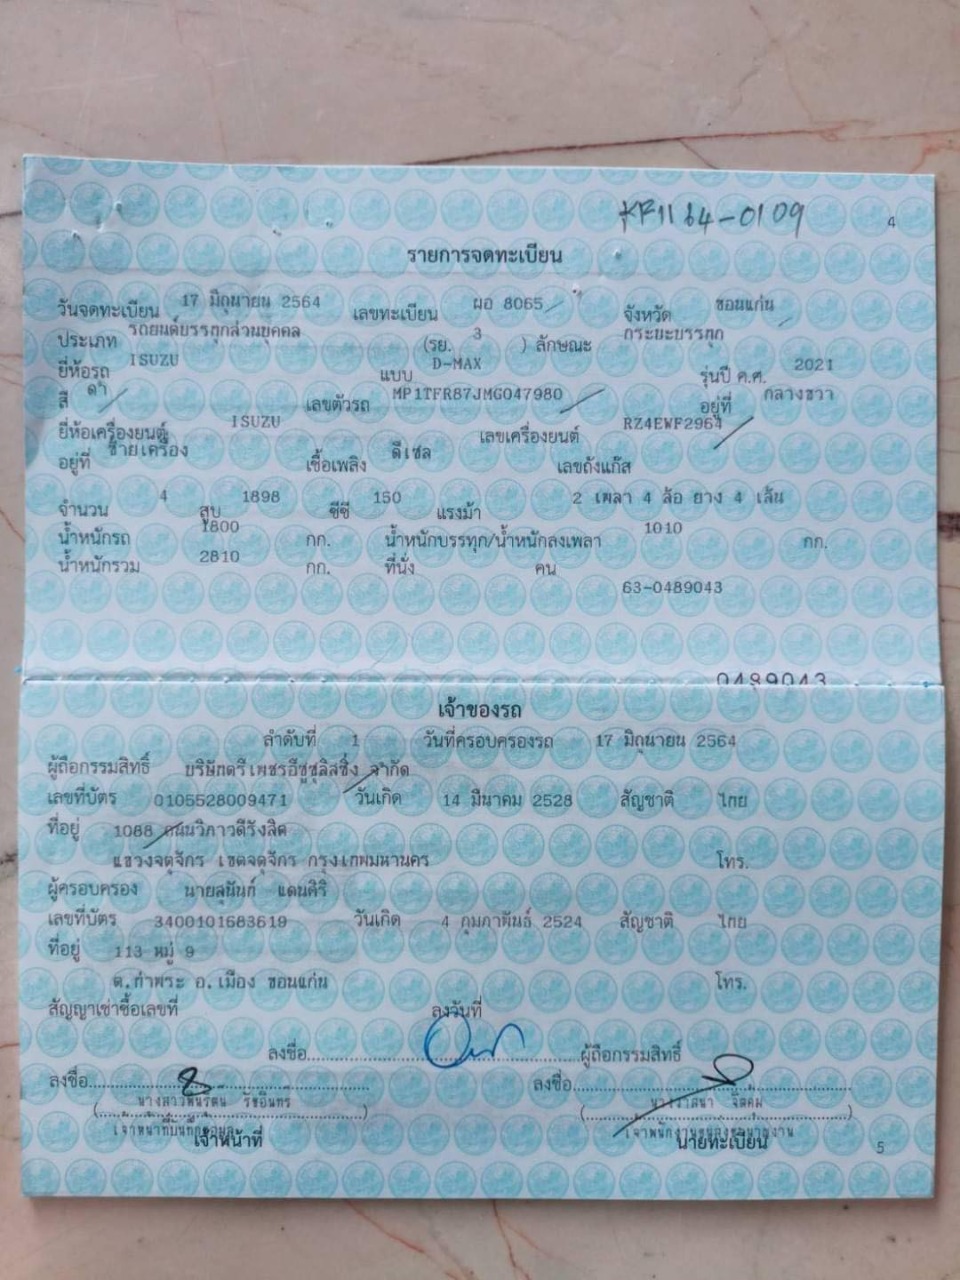 KF1164-0109
4
รายการจดทะเบียน
วันจดทะเบียน 17 มิถุนายน 2564 เลขทะเบียน ผอ 8065 จังหวัด ขอนแก่น
ประเภท รถยนต์บรรทุกส่วนบุคคล (รย. 3 ) ลักษณะ กระบะบรรทุก
ยี่ห้อรถ ISUZU แบบ D-MAX รุ่นปี ค.ศ. 2021
สี ดำ เลขตัวรถ MP1TFR87JMG047980 อยู่ที่ กลางขวา
ยี่ห้อเครื่องยนต์ ISUZU เลขเครื่องยนต์ RZ4EWF2964
อยู่ที่ ซ้ายเครื่อง เชื้อเพลิง ดีเซล เลขถังแก๊ส
จำนวน 4 สูบ 1898 ซีซี 150 แรงม้า 2 เพลา 4 ล้อ ยาง 4 เส้น
น้ำหนักรถ 1800 กก. น้ำหนักบรรทุก/น้ำหนักลงเพลา 1010 กก.
น้ำหนักรวม 2810 กก. ที่นั่ง คน
63-0489043
0489043
เจ้าของรถ
ลำดับที่ 1 วันที่ครอบครองรถ 17 มิถุนายน 2564
ผู้ถือกรรมสิทธิ์ บริษัทตรีเพชรอีซูซุลิสซิ่ง จำกัด
เลขที่บัตร 0105528009471 วันเกิด 14 มีนาคม 2528 สัญชาติ ไทย
ที่อยู่ 1088 ถนนวิภาวดีรังสิต
แขวงจตุจักร เขตจตุจักร กรุงเทพมหานคร โทร.
ผู้ครอบครอง นายสุนันท์ แดนศิริ
เลขที่บัตร 3400101683619 วันเกิด 4 กุมภาพันธ์ 2524 สัญชาติ ไทย
ที่อยู่ 113 หมู่ 9
ต.ทำพระ อ.เมือง ขอนแก่น โทร.
สัญญาเช่าซื้อเลขที่ ลงวันที่
ลงชื่อ ผู้ถือกรรมสิทธิ์
ลงชื่อ ลงชื่อ
(นางสาวพนรัตน์ รัชอินทร์) (นางวาสนา จิตคม)
เจ้าหน้าที่บันทึกข้อมูล เจ้าพนักงานขนส่งชำนาญงาน
เจ้าหน้าที่ นายทะเบียน
5